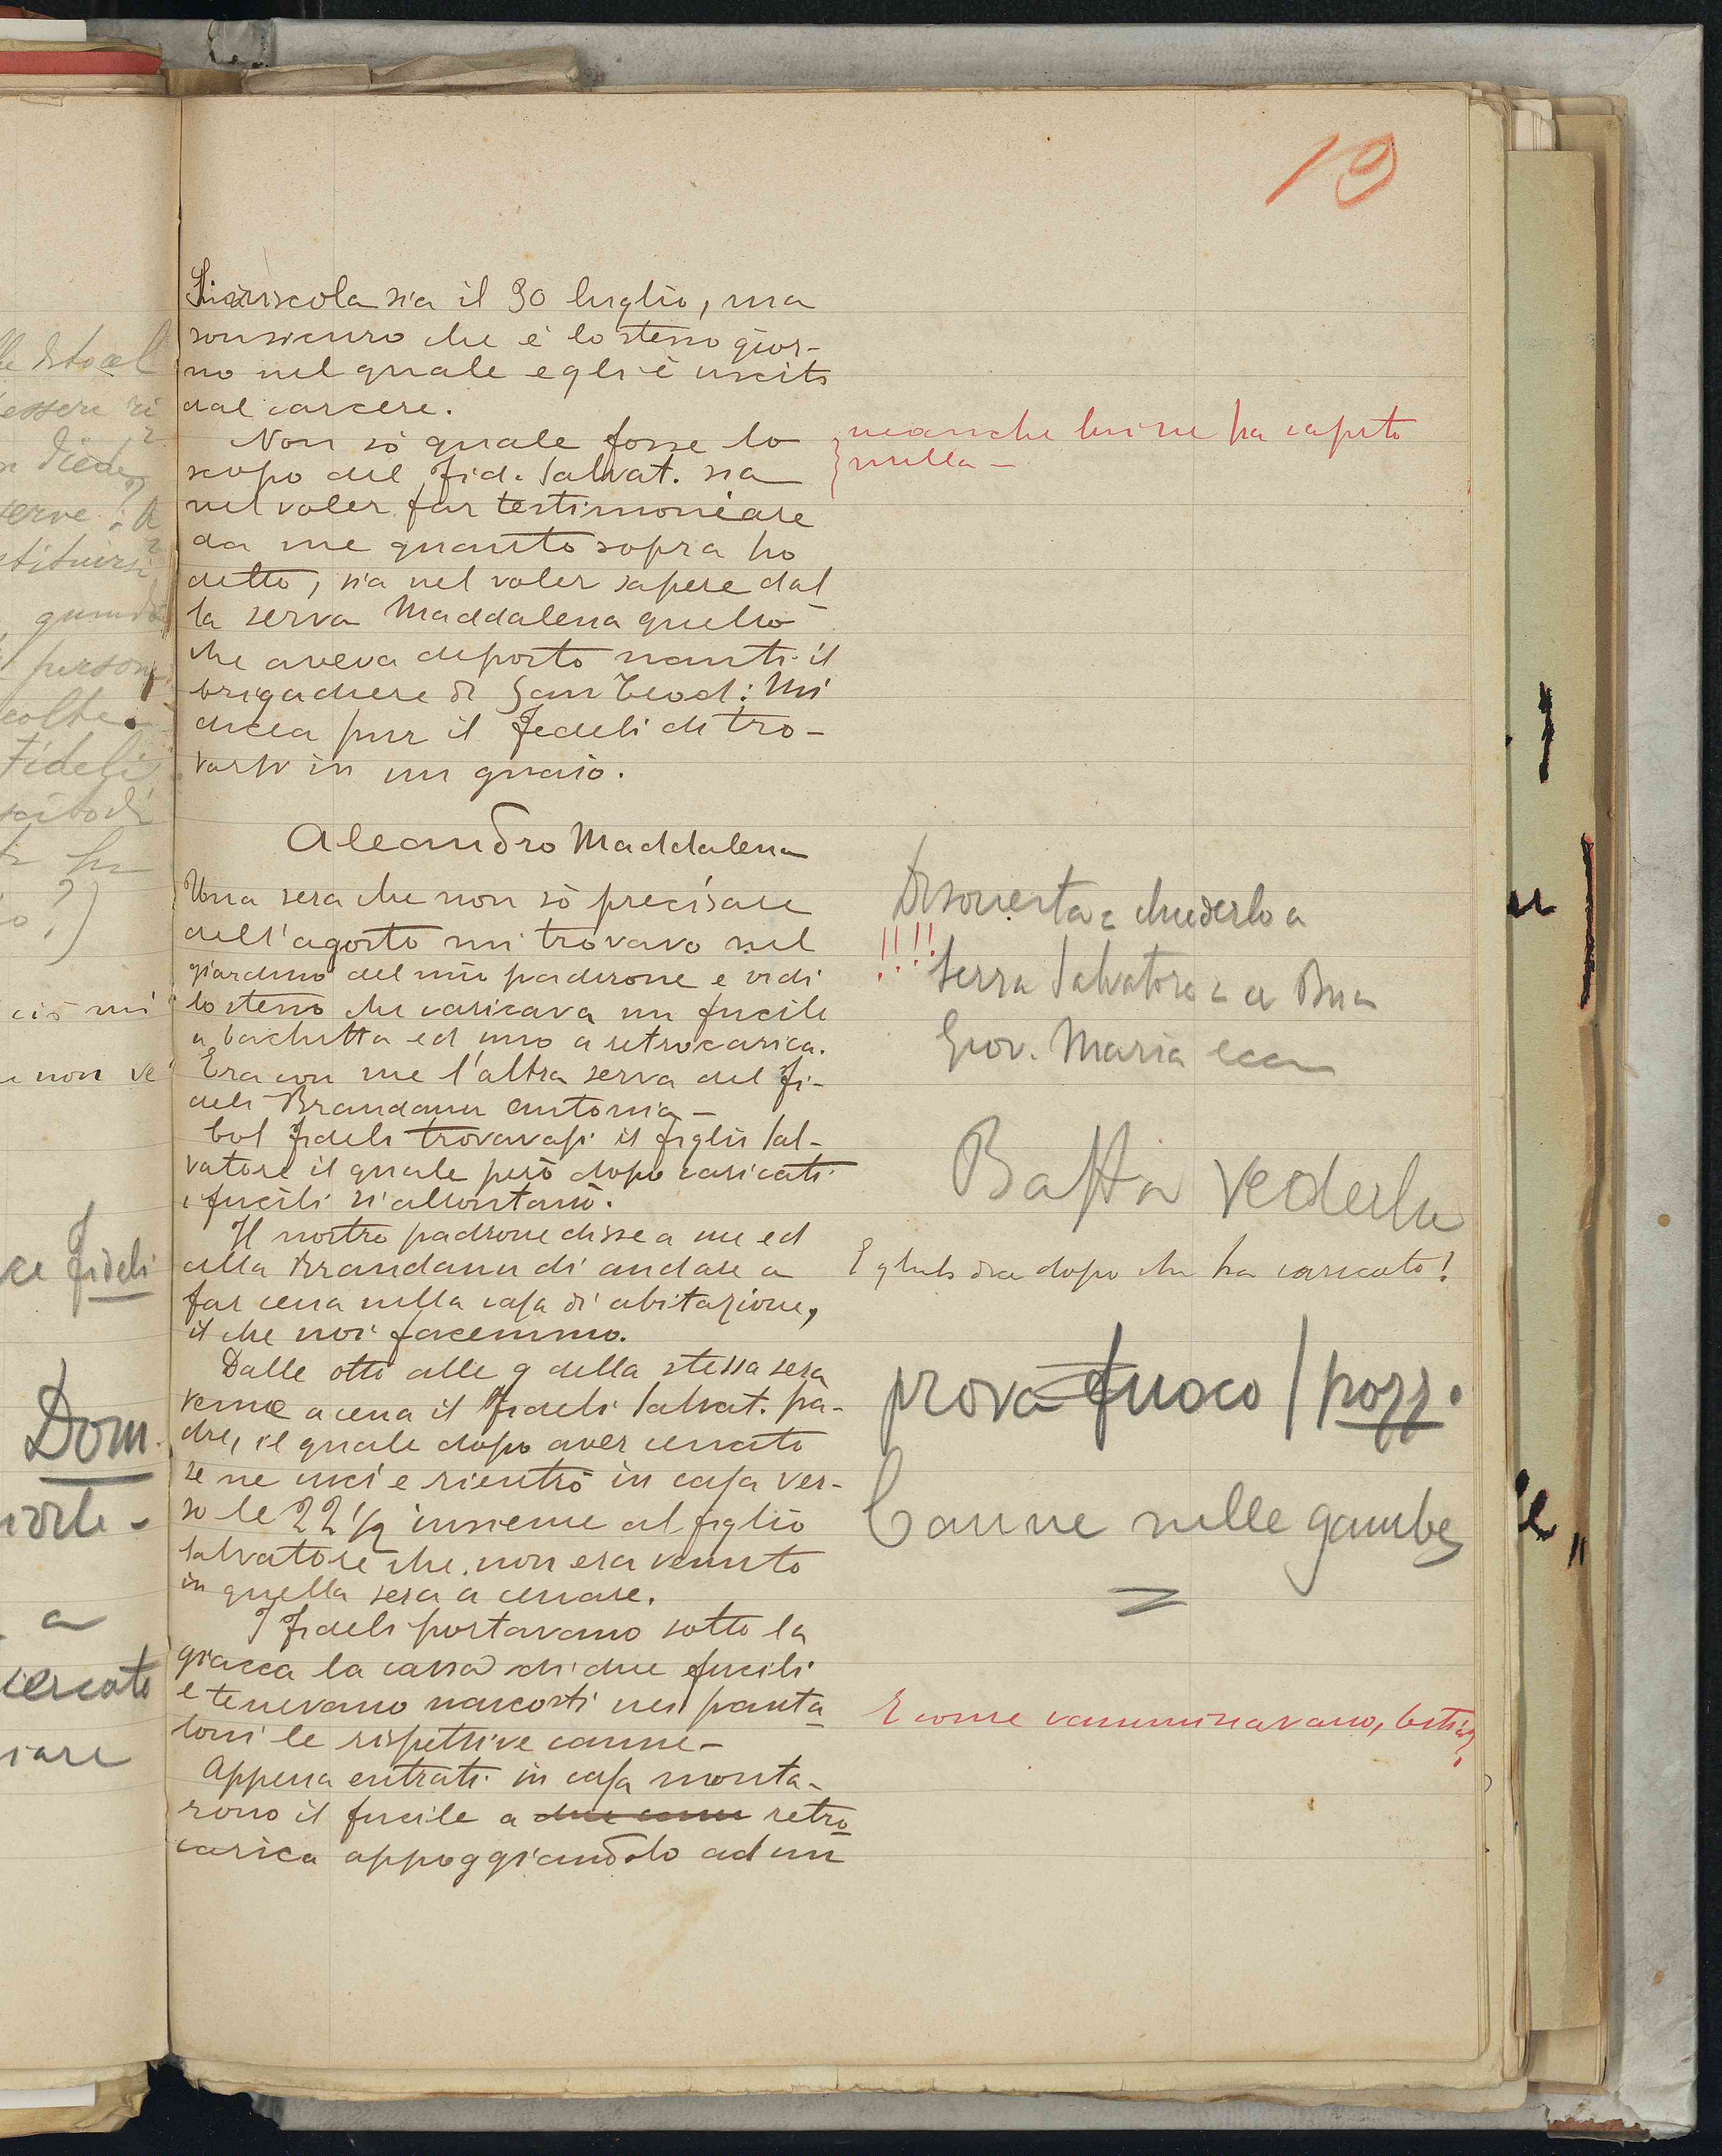 19
Siniscola sia il 30 luglio, ma
son sicuro che è lo stesso gior-
no nel quale egli è uscito
dal carcere.
Non sò quale fosse lo
scopo del Fid. Salvat. sia
nel voler far testimoniare
da me quanto sopra ho
detto, sia nel voler sapere dal
la serva Maddalena quello
che aveva deposto nanti il
brigadiere di San Teod: Mi
dicea pur il Fedeli di tro-
varsi in un guaio.
neanche lui ne ha capito
nulla -
Aleandro Maddalena
Una sera che non sò precisare
dell'agosto mi trovavo nel
giardino del mio padrone e vidi
lo stesso che caricava un fucile
a bachetta ed uno a retrocarica.
Era con me l'altra serva del Fi-
deli Brandanu Antonia -
Col Fideli trovavasi il figlio Sal-
vatore il quale però dopo caricati
i fucili si allontanò.
Il nostro padrone disse a me ed
alla Brandanu di andare a
far cena nella casa di abitazione,
il che noi facemmo.
Dalle otto alle 9 della stessa sera
venne a cena il Fideli Salvat. pa-
dre, il quale dopo aver cenato
se ne uscì e rientrò in casa ver-
so le 22 1/2 insieme al figlio
Salvatore che non era venuto
in quella sera a cenare.
I Fideli portavano sotto la
giacca la cassa di due fucili
e tenevano nascosti nei panta-
loni le rispettive canne -
Appena entrati in casa monta-
rono il fucile a due canne retro
carica appoggiandolo ad un
Disonesta = chiederlo a
!!!!
Serra Salvatore = a Bua
Giov. Maria ecc
Basta vederla
E glielo dice dopo che ha caricato!
prova fuoco / pozz.
Canne nelle gambe
=
E come camminavano, bestia?
Fideli
Dom.
a
cercato